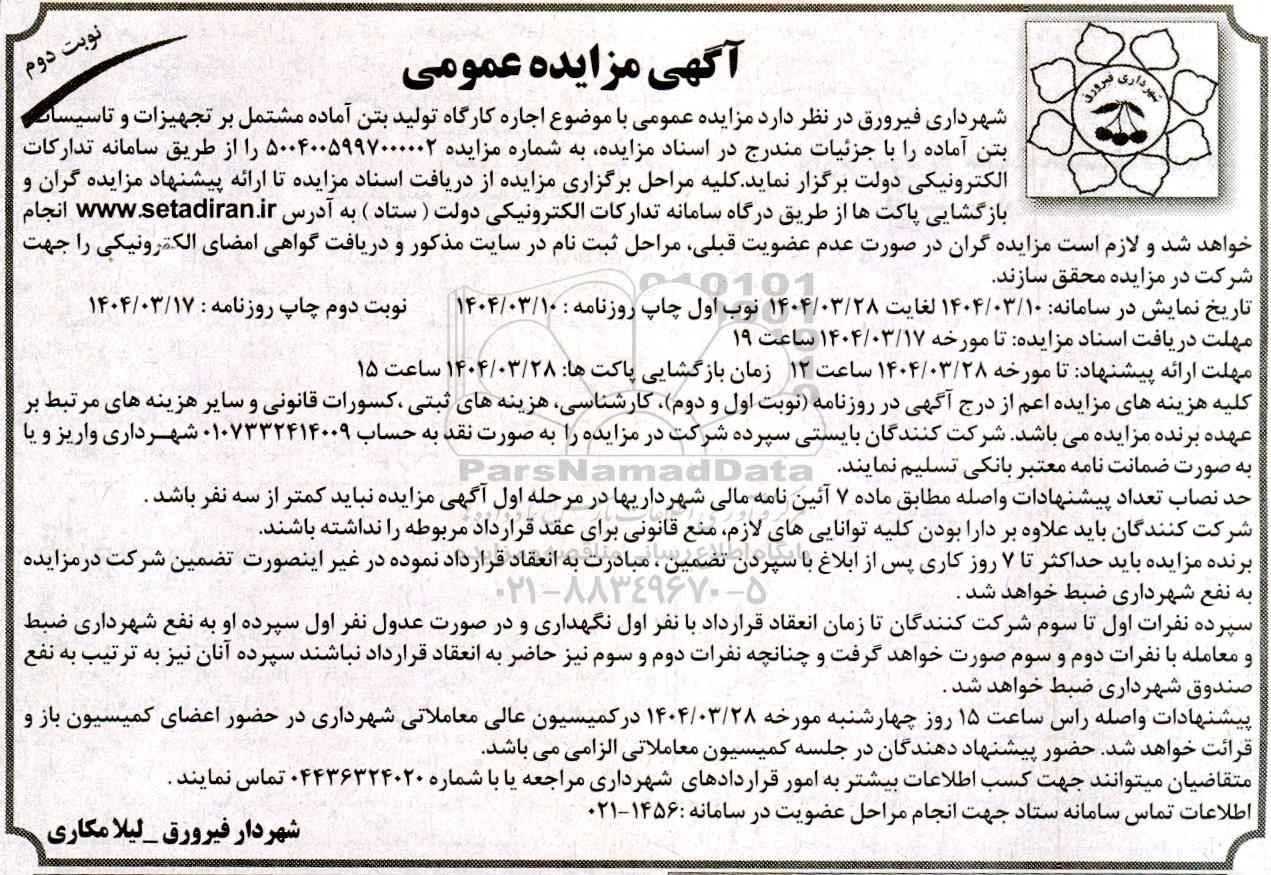 نوبت دوم
شهرداری فیرورق
آگهی مزایده عمومی
شهرداری فیرورق در نظر دارد مزایده عمومی با موضوع اجاره کارگاه تولید بتن آماده مشتمل بر تجهیزات و تاسیسات
بتن آماده را با جزئیات مندرج در اسناد مزایده، به شماره مزایده ۵۰۰۴۰۰۵۹۹۷۰۰۰۰۰۲ را از طریق سامانه تدارکات
الکترونیکی دولت برگزار نماید.کلیه مراحل برگزاری مزایده از دریافت اسناد مزایده تا ارائه پیشنهاد مزایده گران و
بازگشایی پاکت ها از طریق درگاه سامانه تدارکات الکترونیکی دولت ( ستاد ) به آدرس www.setadiran.ir انجام
خواهد شد و لازم است مزایده گران در صورت عدم عضویت قبلی، مراحل ثبت نام در سایت مذکور و دریافت گواهی امضای الکترونیکی را جهت
شرکت در مزایده محقق سازند.
تاریخ نمایش در سامانه: ۱۴۰۴/۰۳/۱۰ لغایت ۱۴۰۴/۰۳/۲۸ نوب اول چاپ روزنامه : ۱۴۰۴/۰۳/۱۰ نوبت دوم چاپ روزنامه : ۱۴۰۴/۰۳/۱۷
مهلت دریافت اسناد مزایده: تا مورخه ۱۴۰۴/۰۳/۱۷ ساعت ۱۹
مهلت ارائه پیشنهاد: تا مورخه ۱۴۰۴/۰۳/۲۸ ساعت ۱۲ زمان بازگشایی پاکت ها: ۱۴۰۴/۰۳/۲۸ ساعت ۱۵
کلیه هزینه های مزایده اعم از درج آگهی در روزنامه (نوبت اول و دوم)، کارشناسی، هزینه های ثبتی ،کسورات قانونی و سایر هزینه های مرتبط بر
عهده برنده مزایده می باشد. شرکت کنندگان بایستی سپرده شرکت در مزایده را به صورت نقد به حساب ۰۱۰۷۳۳۲۴۱۴۰۰۹ شهرداری واریز و یا
به صورت ضمانت نامه معتبر بانکی تسلیم نمایند.
حد نصاب تعداد پیشنهادات واصله مطابق ماده ۷ آئین نامه مالی شهرداریها در مرحله اول آگهی مزایده نباید کمتر از سه نفر باشد .
شرکت کنندگان باید علاوه بر دارا بودن کلیه توانایی های لازم، منع قانونی برای عقد قرارداد مربوطه را نداشته باشند.
برنده مزایده باید حداکثر تا ۷ روز کاری پس از ابلاغ با سپردن تضمین ، مبادرت به انعقاد قرارداد نموده در غیر اینصورت تضمین شرکت درمزایده
به نفع شهرداری ضبط خواهد شد .
سپرده نفرات اول تا سوم شرکت کنندگان تا زمان انعقاد قرارداد با نفر اول نگهداری و در صورت عدول نفر اول سپرده او به نفع شهرداری ضبط
و معامله با نفرات دوم و سوم صورت خواهد گرفت و چنانچه نفرات دوم و سوم نیز حاضر به انعقاد قرارداد نباشند سپرده آنان نیز به ترتیب به نفع
صندوق شهرداری ضبط خواهد شد .
پیشنهادات واصله راس ساعت ۱۵ روز چهارشنبه مورخه ۱۴۰۴/۰۳/۲۸ درکمیسیون عالی معاملاتی شهرداری در حضور اعضای کمیسیون باز و
قرائت خواهد شد. حضور پیشنهاد دهندگان در جلسه کمیسیون معاملاتی الزامی می باشد.
متقاضیان میتوانند جهت کسب اطلاعات بیشتر به امور قراردادهای شهرداری مراجعه یا با شماره ۰۴۴۳۶۳۲۴۰۲۰ تماس نمایند .
اطلاعات تماس سامانه ستاد جهت انجام مراحل عضویت در سامانه :۱۴۵۶-۰۲۱
شهردار فیرورق _ لیلا مکاری
ParsNamadData
پایگاه اطلاع رسانی مناقصه و مزایده
۰۲۱-۸۸۳۴۹۶۷۰-۵